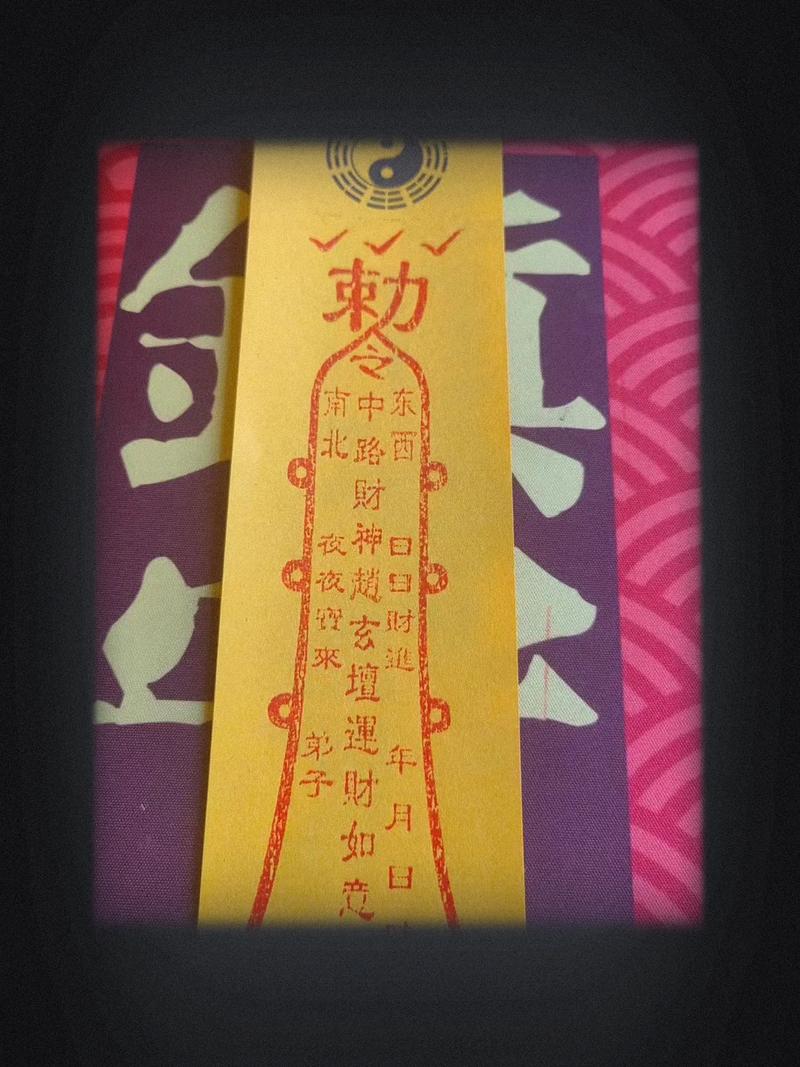 勅令
东西
中路財神趙玄壇運財如意
南北
日日財進
夜夜寶來
年月日
弟子